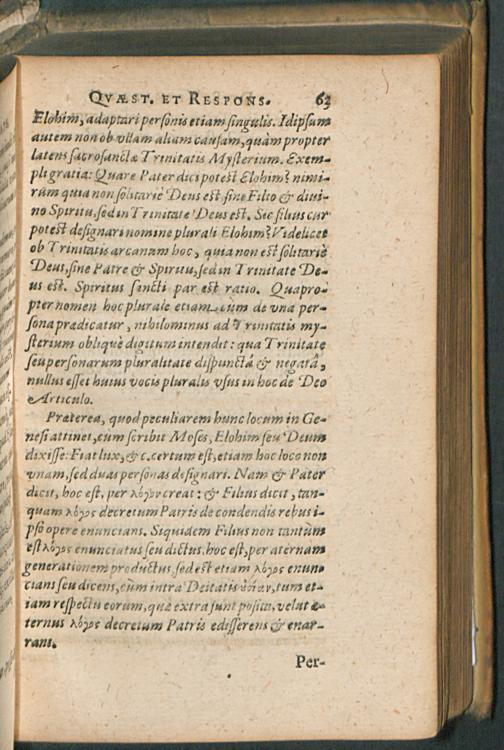 QVÆST. ET RESPONS. 63
Elohim, adaptari personis etiam singulis. Idipsum
autem non ob vllam aliam causam, quàm propter
latens sacrosanctæ Trinitatis Mysterium. Exem-
pli gratia: Quare Pater dici potest Elohim? nimi-
rùm quia non solitariè Deus est sine Filio & diui-
no Spiritu, sed in Trinitate Deus est. Sic filius cur
potest designari nomine plurali Elohim? Videlicet
ob Trinitatis arcanum hoc, quia non est solitariè
Deus, sine Patre & Spiritu, sed in Trinitate De-
us est. Spiritus sancti par est ratio. Quapro-
pter nomen hoc plurale etiam cùm de vna per-
sona prædicatur, nihilominus ad Trinitatis my-
sterium obliquè digitum intendit: qua Trinitate
seu personarum pluralitate dispunctâ & negatâ,
nullus esset huius vocis pluralis vsus in hoc de Deo
Articulo.
Præterea, quod peculiarem hunc locum in Ge-
nesi attinet, cùm scribit Moses, Elohim seu Deum
dixisse: Fiat lux, &c. certum est, etiam hoc loco non
vnam, sed duas personas designari. Nam & Pater
dicit, hoc est, per λόγον creat: & Filius dicit, tan-
quam λόγος decretum Patris de condendis rebus i-
pso opere enuncians. Siquidem Filius non tantùm
est λόγος enunciatus seu dictus: hoc est, per æternam
generationem productus, sed est etiam λόγος enun-
cians seu dicens, cùm intra Deitatis οὐσίαν, tum et-
iam respectu eorum, quæ extra sunt posita, velut æ-
ternus λόγος decretum Patris edisserens & enar-
rans.
Per-